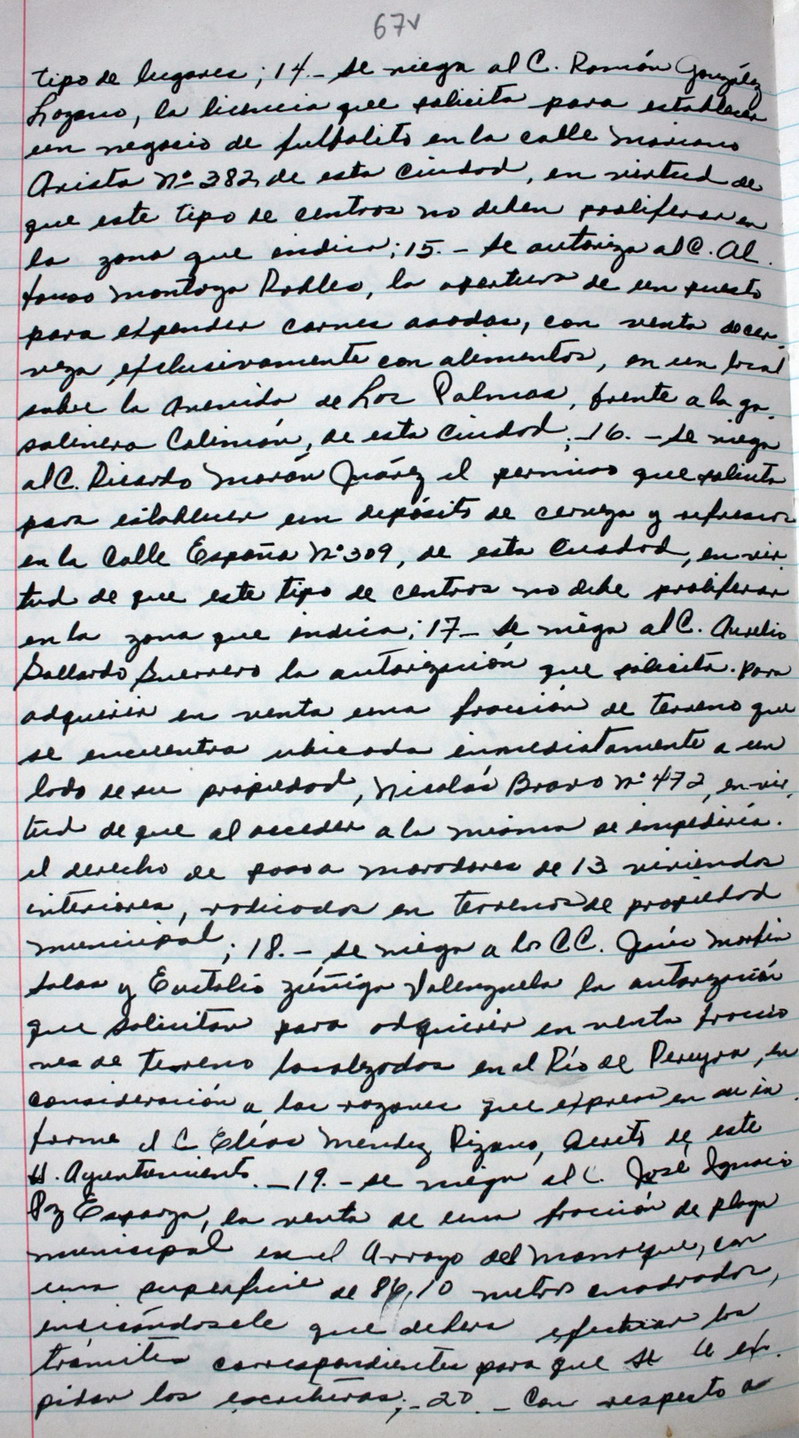 67v
tipo de lugares; 14.- Se niega al C. Ramón González
Lozano, la licencia que solicita para establecer
un negocio de futbolito en la calle Mariano
Arista Nº 382, de esta ciudad, en virtud de
que este tipo de centros no deben proliferar en
la zona que indica; 15.- Se autoriza al C. Al
fonso Montoya Robles, la apertura de un puesto
para expender carnes asadas, con venta de cer
veza exclusivamente con alimentos, en un local
sobre la Avenida de Las Palmas, frente a la ga
solinera Colimán, de esta Ciudad; 16.- Se niega
al C. Ricardo Morán Juárez el permiso que solicita
para establecer un depósito de cerveza y refrescos
en la Calle España Nº 309, de esta Ciudad, en vir
tud de que este tipo de centros no debe proliferar
en la zona que indica; 17- Se niega al C. Aurelio
Gallardo Guerrero la autorización que solicita para
adquirir en venta una fracción de terreno que
se encuentra ubicada inmediatamente a un
lado de su propiedad, Nicolás Bravo Nº 472, en vir
tud de que al acceder a la misma se impediría
el derecho de paso a moradores de 13 viviendas
interiores, radicados en terrenos de propiedad
municipal; 18.- Se niega a los CC. Jesús Morfín
Salas y Eustolio Zúñiga Valenzuela la autorización
que solicitan para adquirir en venta fraccio
nes de terreno localizados en el Río de Pereyra, en
consideración a las razones que expresa en su in
forme el C Elías Mendez Pizano, Scrito de este
H. Ayuntamiento.-19.- se niega al C. José Ignacio
Paz Esparza, la venta de una fracción de plaga
municipal en el Arroyo del Manrique, con
una superficie de 86,10 metros cuadrados,
indicándosele que deberá efectuar los
trámites correspondientes para que se le ex
pidan las escrituras; 20.- Con respecto a